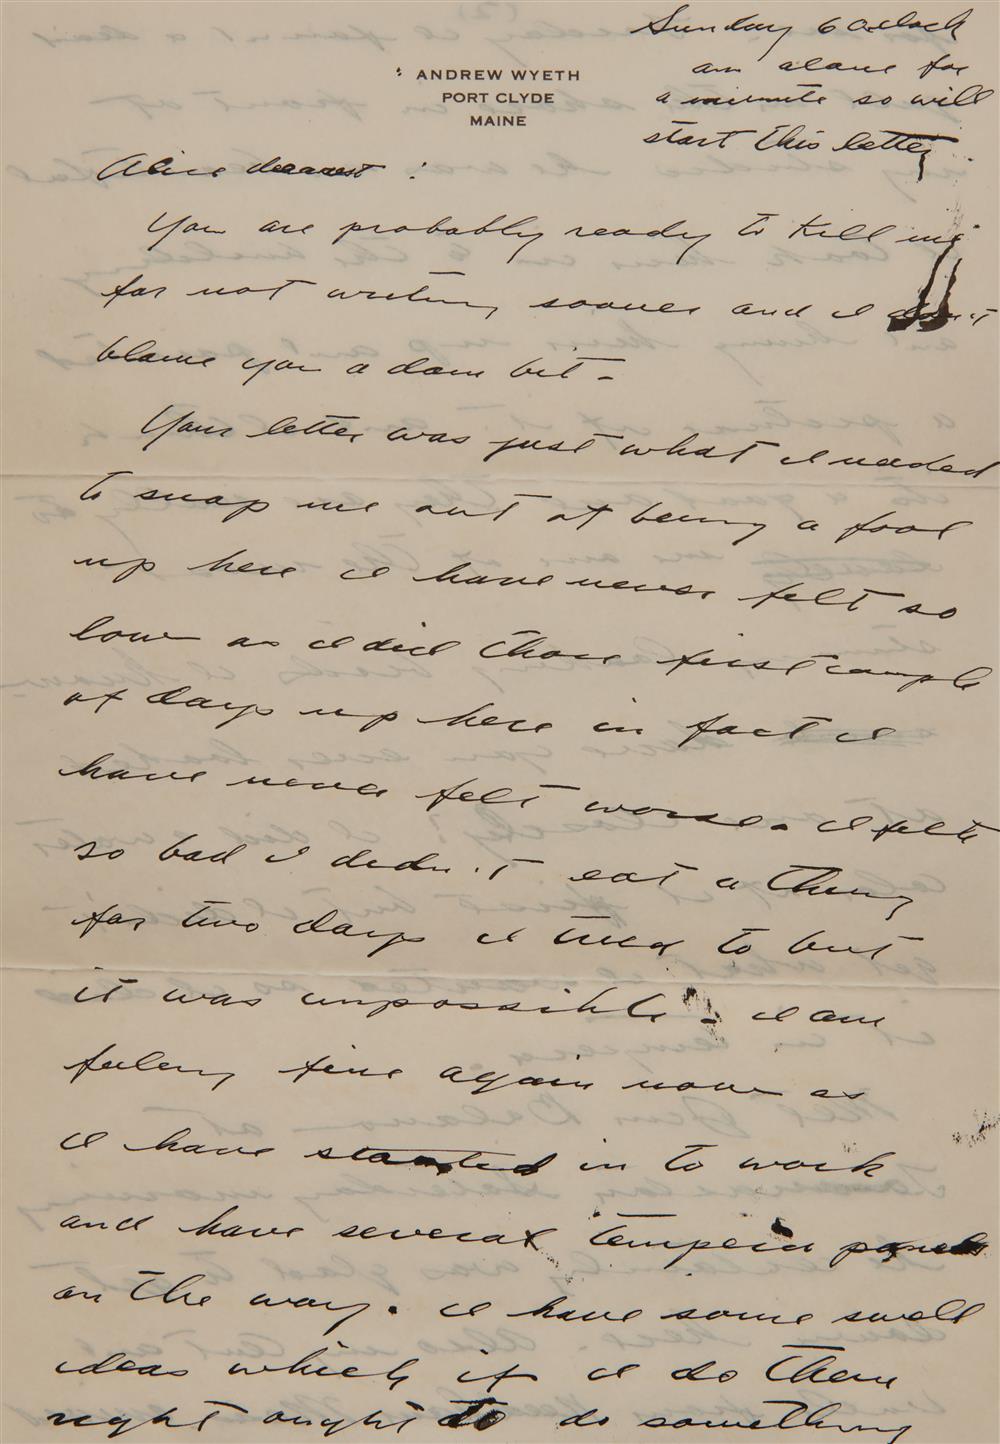 Sunday 6 oclock
am alone for
a minute so will
start this letter
ANDREW WYETH
PORT CLYDE
MAINE
Alice dearest :
You are probably ready to kill me
for not writing sooner and I don't
blame you a dam bit -
Your letter was just what I needed
to snap me out of being a fool
up here I have never felt so
low as I did those first couple
of days up here in fact I
have never felt worse. I felt
so bad I didn't eat a thing
for two days I tried to but
it was impossible - I am
feeling fine again now as
I have started in to work
and have several tempera panels
on the way. I have some swell
ideas which if I do them
right ought to do something